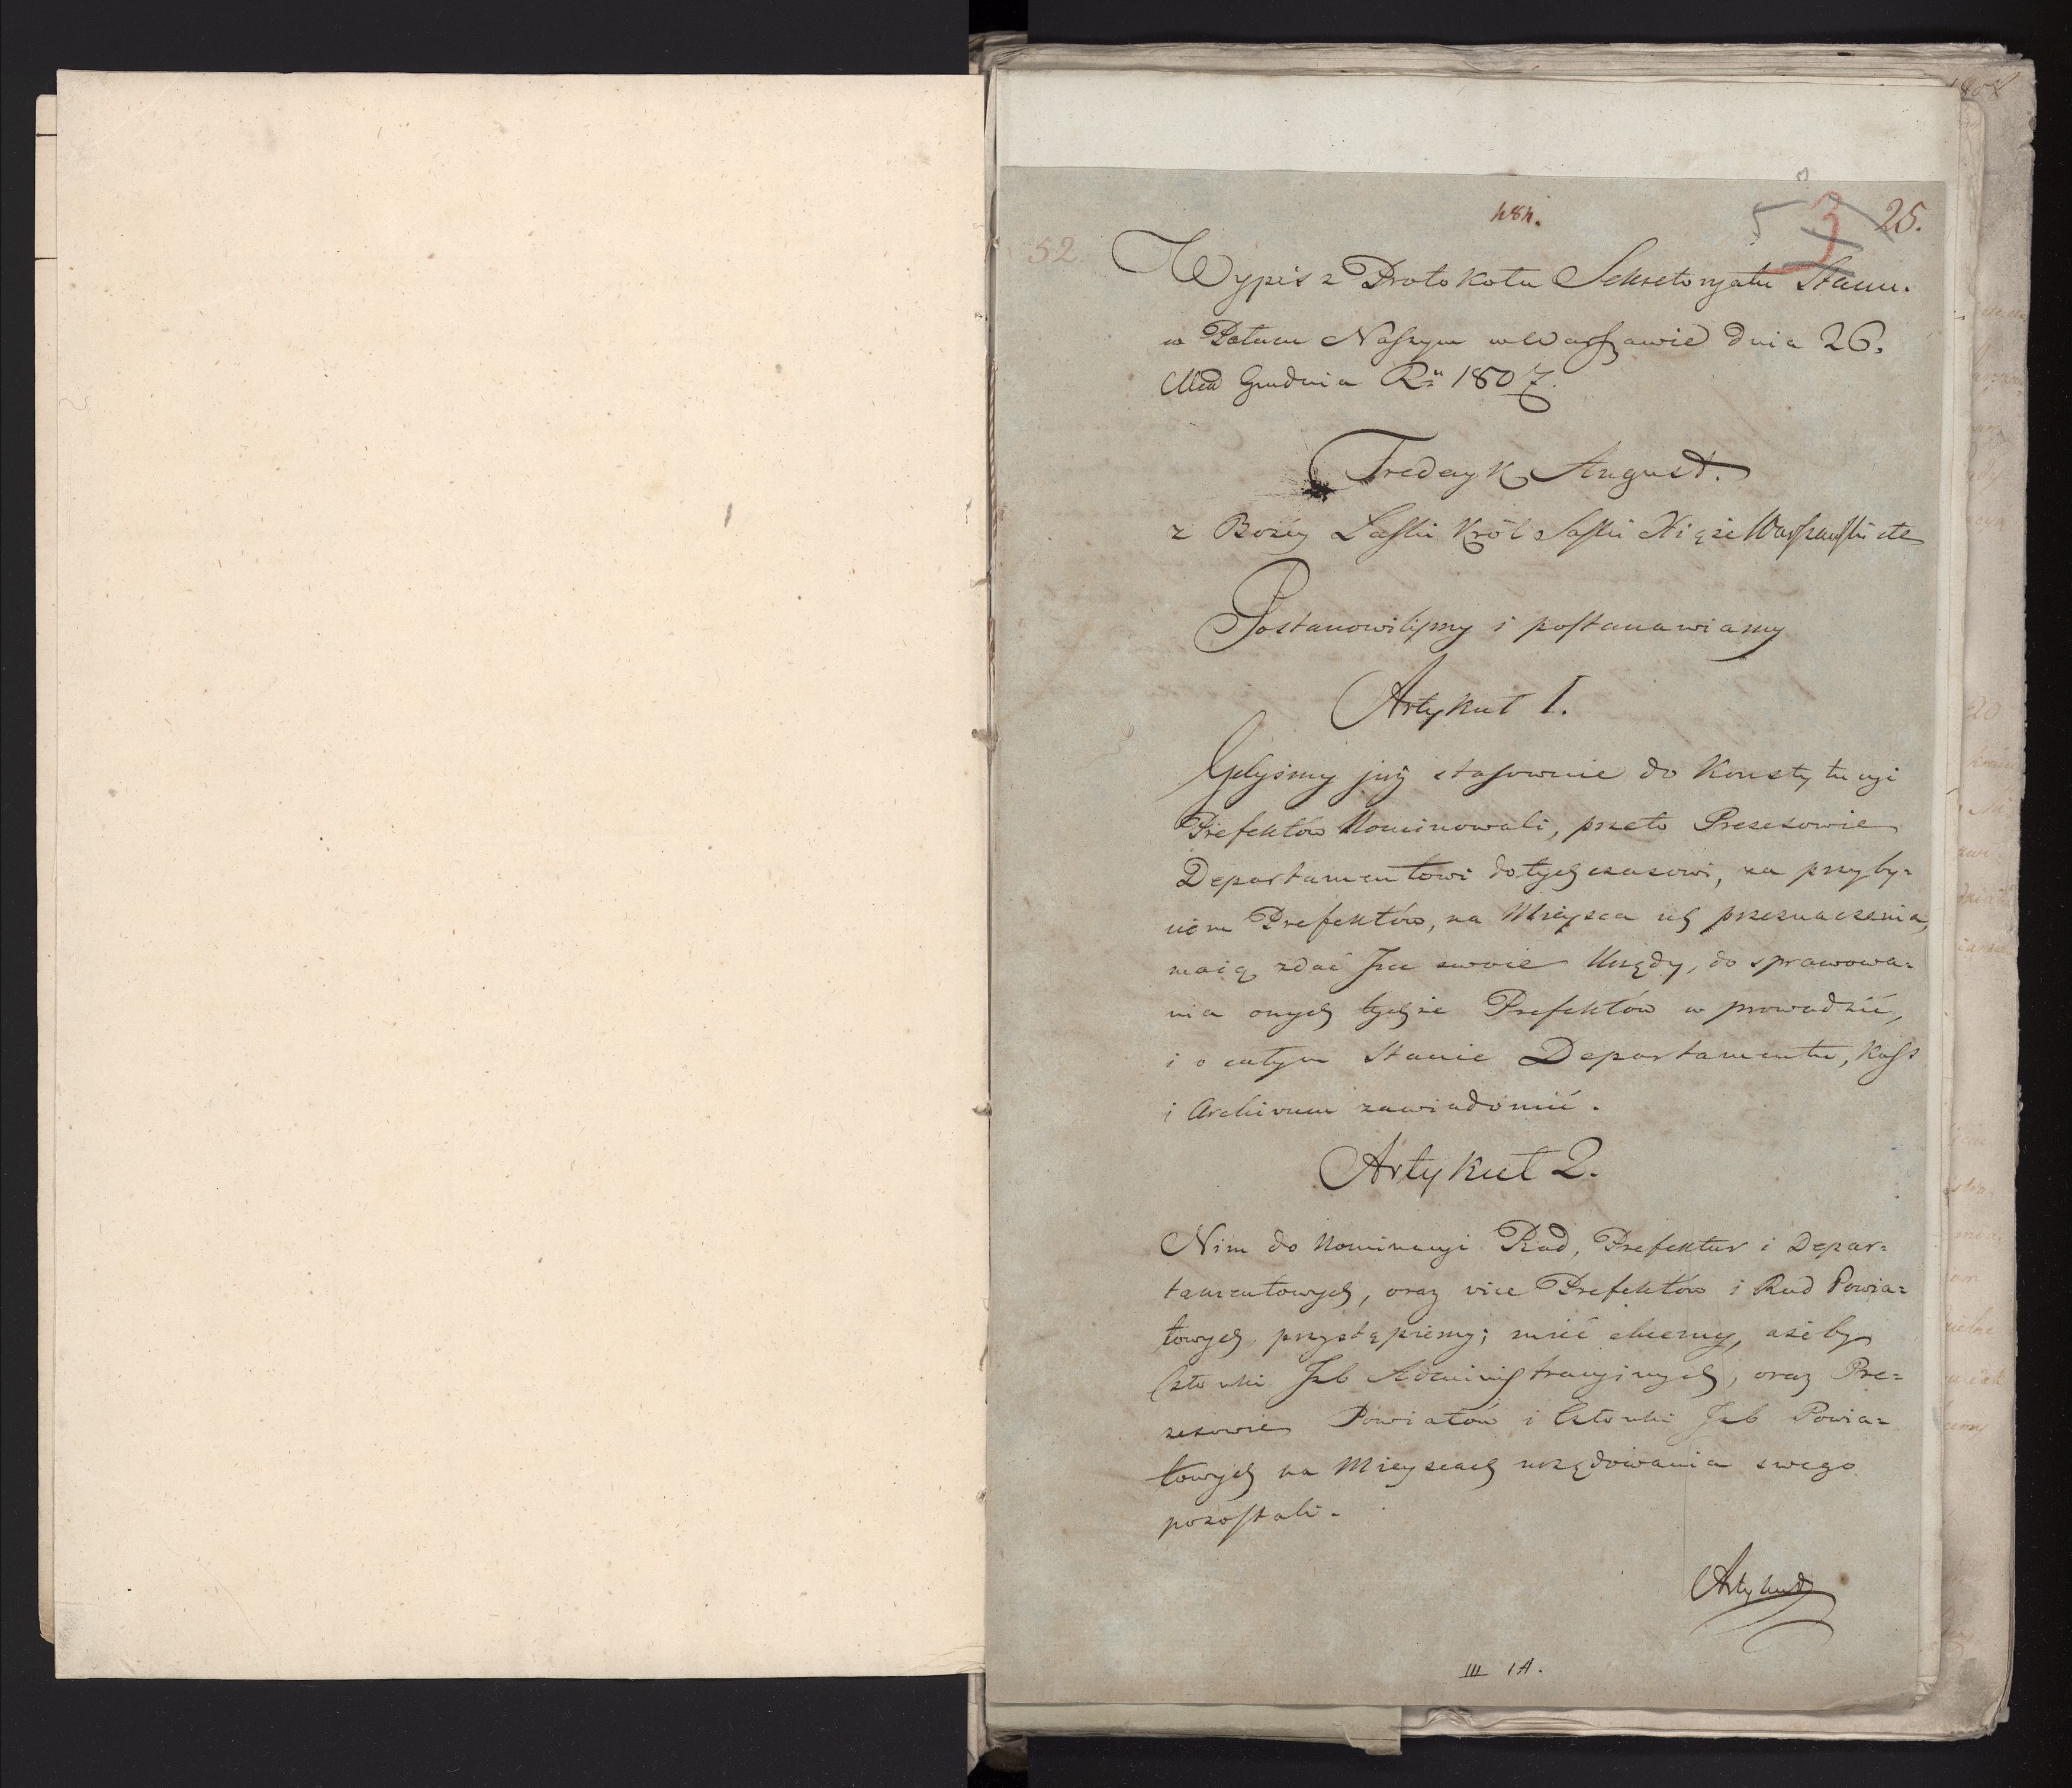 484.
5 3 25.
52.
Wypis z Protokołu Sekretaryatu Stanu.
w Pałacu Naszym w Warszawie dnia 26.
Mca Grudnia Ru 1807.
Fryderyk August.
z Bożey Łaski Król Saski Xiąże Warszawski etc
Postanowiliśmy i postanawiamy
Artykuł I.
Gdyśmy już stasownie do Konstytucyi
Prefektów Nominowali, przeto Prezesowie
Departamentowi dotychczasowi, za przyby=
ciem Prefektów, na Mieysca ich przeznaczenia,
maią zdać Jm swoie Urzędy, do sprawowa=
nia onych tychże Prefektów w prowadzić,
i o całym Stanie Departamentu, Kass
i Archivum zawiadomić.
Artykuł 2.
Nim do Nominacyi Rad, Prefektur i Depar=
tamentowych, oraz vice Prefektów i Rad Powia=
towych przystąpiemy; mieć chcemy, ażeby
Członki Jzb Administracyinych, oraz Pre=
zesowie Powiatów i Członki Jzb Powia=
towych na Mieyscach urzędowania swego
pozostali.
Artykuł
III 1A.